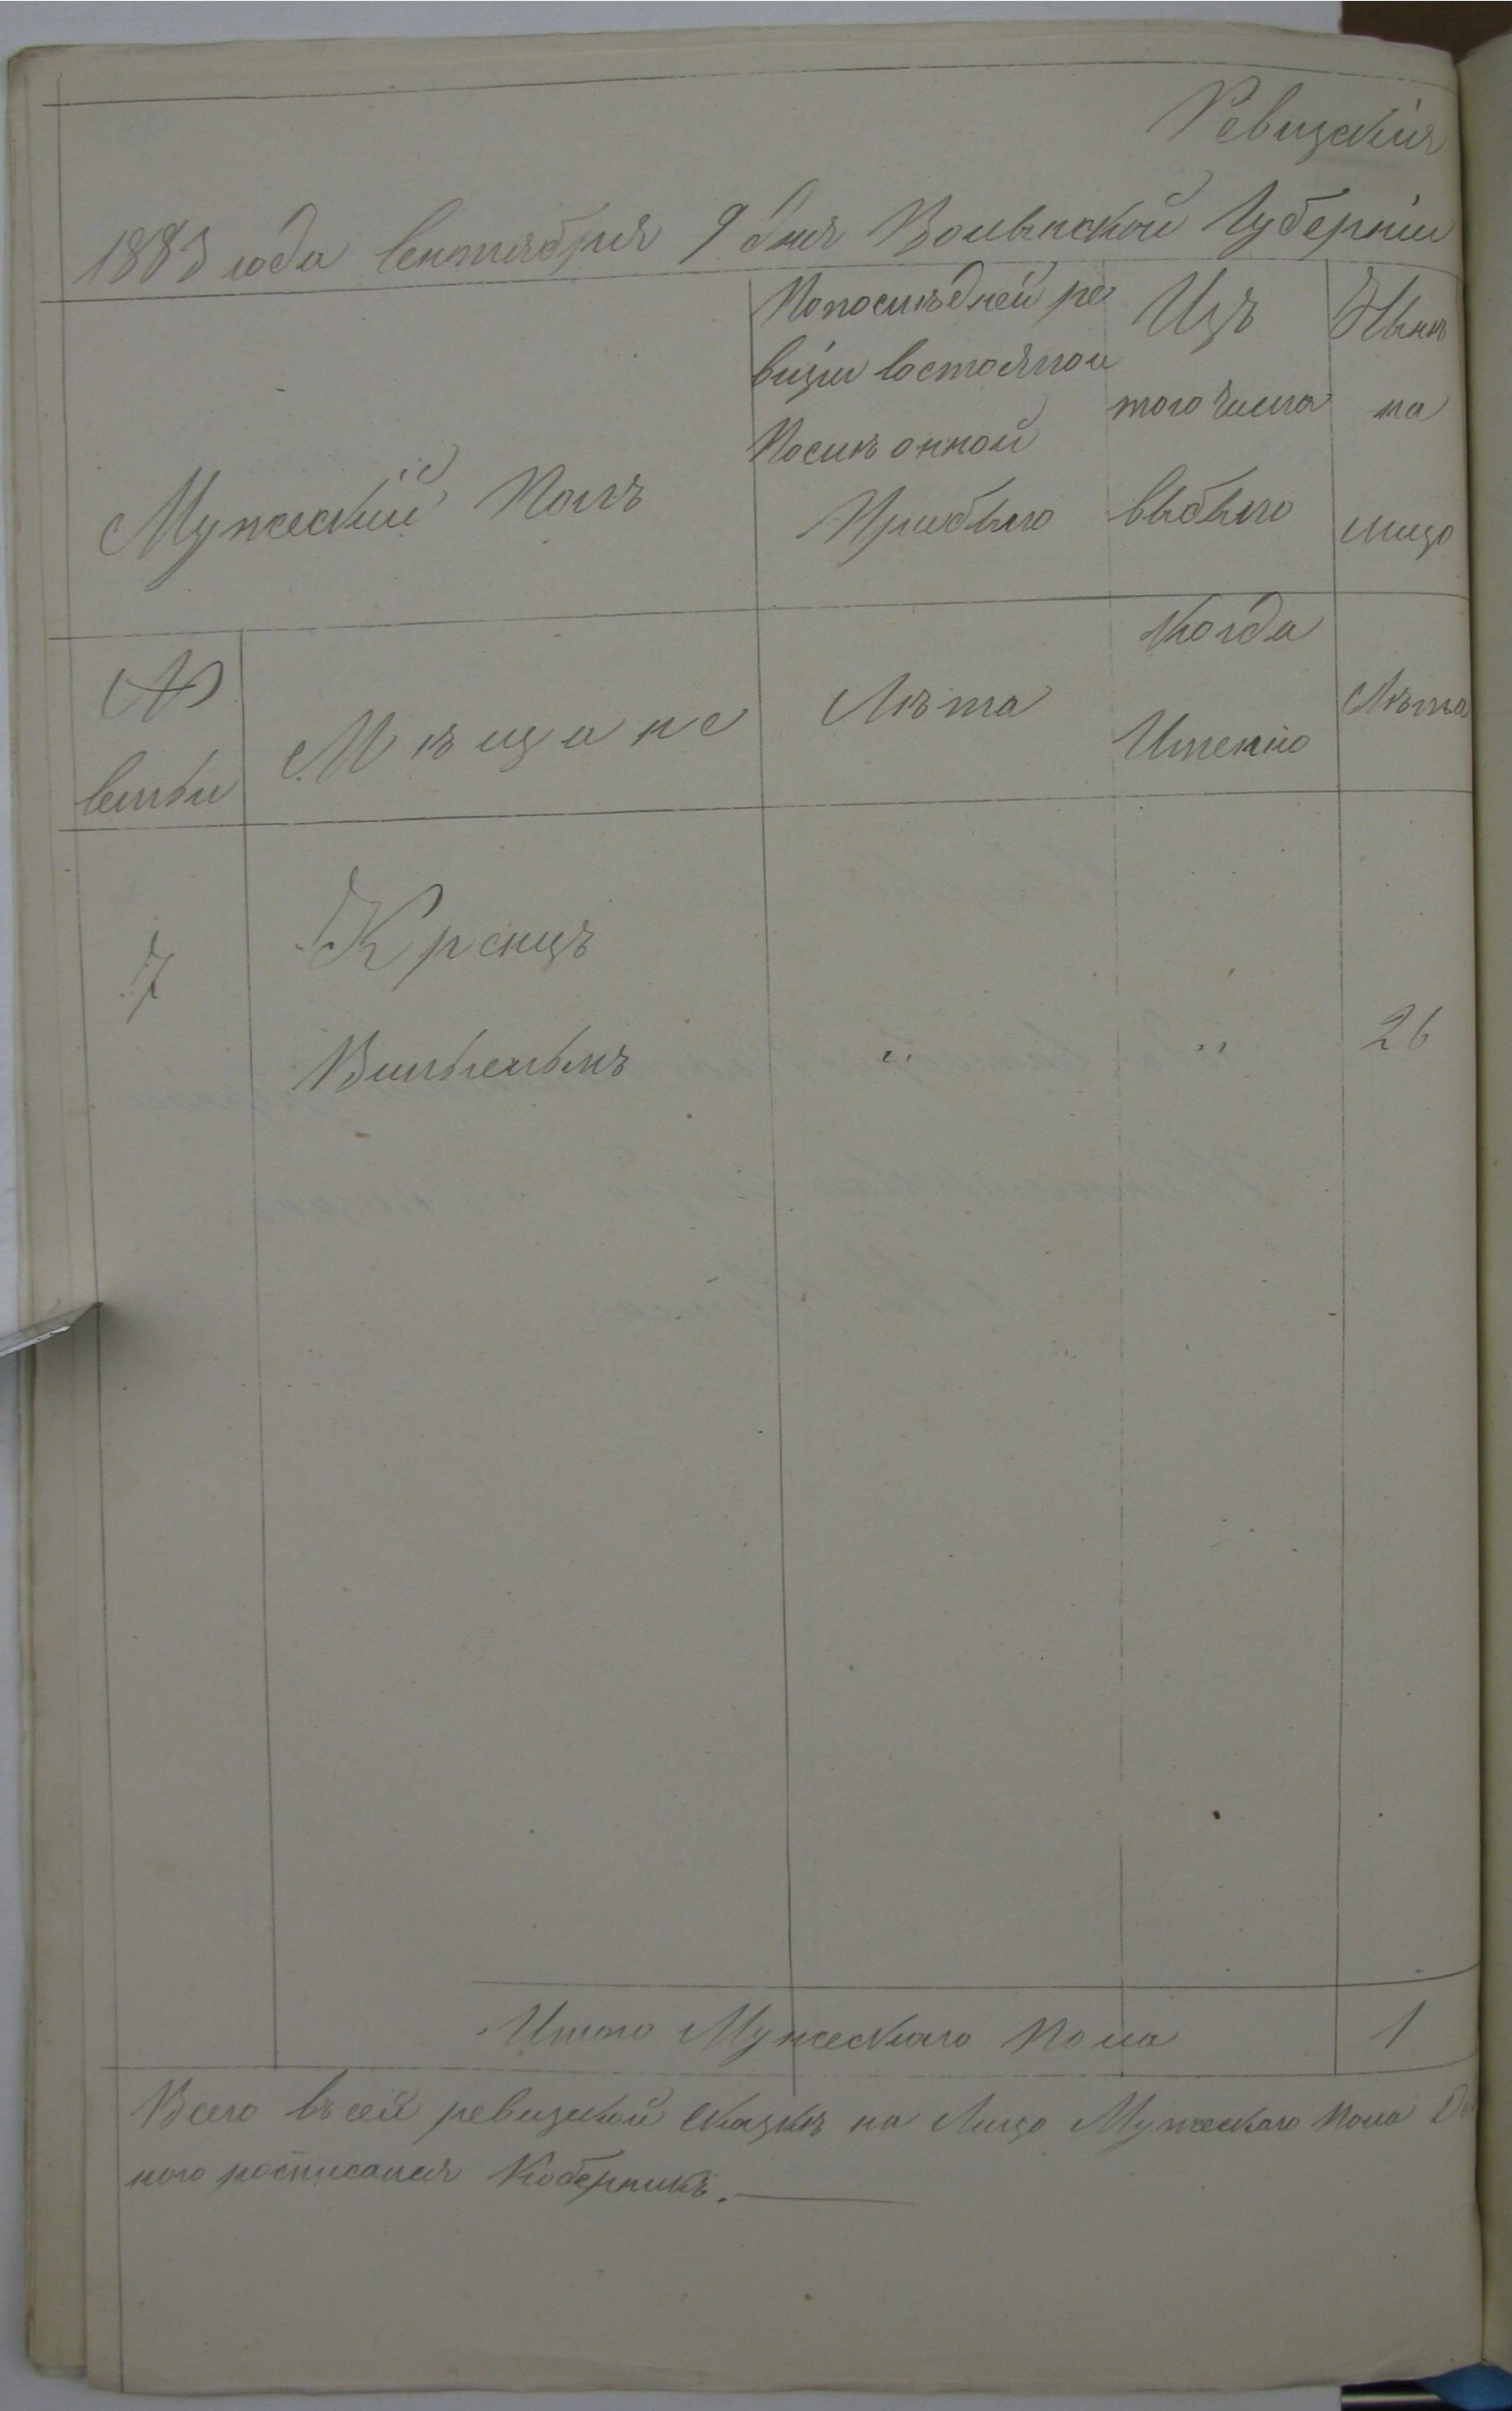 Ревизскія
1883 года Сентября 9 дня Волынской Губерніи
Мужескій Полъ
По послѣдней ре
визіи состояло и
После онной
Прибыло
Изъ
того числа
выбыло
Нынѣ
на
лицо
№
семьи
Мѣщане
Лѣта
Когда
Именно
Лѣта
7
Кренцъ
Вильгельмъ
"
"
26
Итого Мужескаго Пола
1
Всего въ сей ревизской сказкѣ на Лицо Мужескаго Пола
ного росписался Коберникъ.